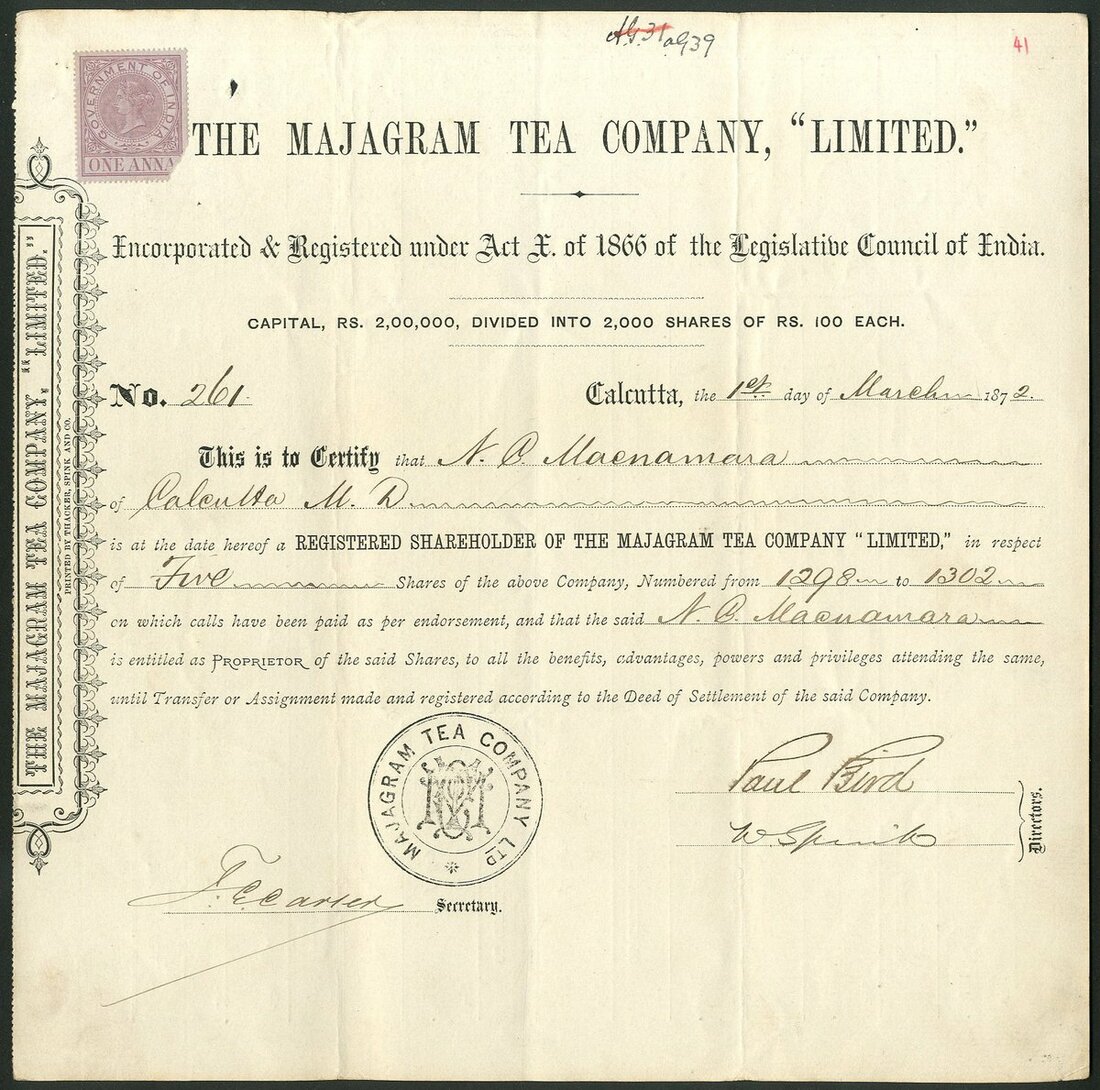 A.G.31 aG39
41
GOVERNMENT OF INDIA
ONE ANNA
THE MAJAGRAM TEA COMPANY, "LIMITED."
Incorporated & Registered under Act X. of 1866 of the Legislative Council of India.
CAPITAL, RS. 2,00,000, DIVIDED INTO 2,000 SHARES OF RS. 100 EACH.
No. 261 Calcutta, the 1st day of March 1872.
This is to Certify that N. C. Macnamara
of Calcutta M. D.
is at the date hereof a REGISTERED SHAREHOLDER OF THE MAJAGRAM TEA COMPANY "LIMITED," in respect
of Five Shares of the above Company, Numbered from 1298 to 1302
on which calls have been paid as per endorsement, and that the said N. C. Macnamara
is entitled as PROPRIETOR of the said Shares, to all the benefits, advantages, powers and privileges attending the same,
until Transfer or Assignment made and registered according to the Deed of Settlement of the said Company.
MAJAGRAM TEA COMPANY LTD
Paul Bird
W Spink
Directors.
F. C. Carter Secretary.
THE MAJAGRAM TEA COMPANY, "LIMITED."
PRINTED BY THACKER, SPINK AND CO.